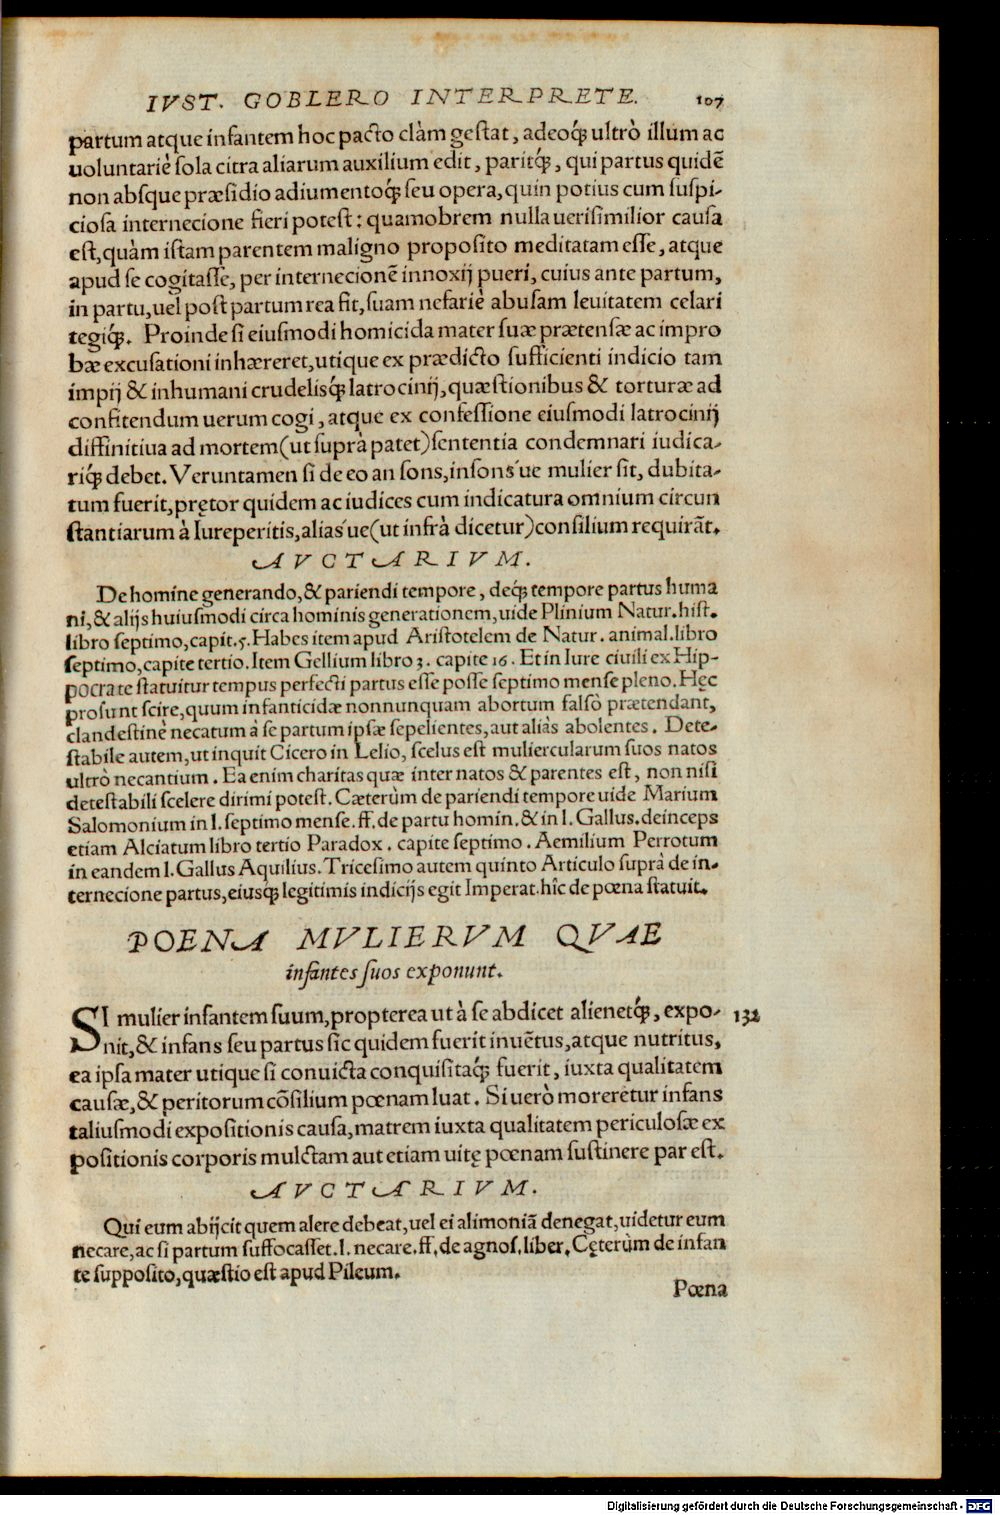 IVST. GOBLERO INTERPRETE. 107
partum atque infantem hoc pacto clàm gestat, adeoq́ꝫ ultrò illum ac
uoluntariè sola citra aliarum auxilium edit, paritq́ꝫ, qui partus quidẽ
non absque præsidio adiumentoq́ꝫ seu opera, quin potius cum suspi-
ciosa internecione fieri potest: quamobrem nulla uerisimilior causa
est, quàm istam parentem maligno proposito meditatam esse, atque
apud se cogitasse, per internecionẽ innoxij pueri, cuius ante partum,
in partu, uel post partum rea fit, suam nefariè abusam leuitatem celari
tegiq́ꝫ. Proinde si eiusmodi homicida mater suæ prætensæ ac impro
bæ excusationi inhæreret, utique ex prædicto sufficienti indicio tam
impij & inhumani crudelisq́ꝫ latrocinij, quæstionibus & torturæ ad
confitendum uerum cogi, atque ex confessione eiusmodi latrocinij
diffinitiua ad mortem (ut suprà patet) sententia condemnari iudica-
riq́ꝫ debet. Veruntamen si de eo an sons, insons ́ue mulier sit, dubita-
tum fuerit, prętor quidem ac iudices cum indicatura omnium circun
stantiarum à Iureperitis, alias ́ue (ut infrà dicetur) consilium requirãt.
AVCTARIVM.
De homine generando, & pariendi tempore, deqꝫ tempore partus huma
ni, & alijs huiusmodi circa hominis generationem, uide Plinium Natur. hist.
libro septimo, capit. 5. Habes item apud Aristotelem de Natur. animal. libro
septimo, capite tertio. Item Gellium libro 3. capite 16. Et in Iure ciuili ex Hip-
pocrate statuitur tempus perfecti partus esse posse septimo mense pleno. Hęc
prosunt scire, quum infanticidæ nonnunquam abortum falsò prætendant,
clandestinè necatum à se partum ipsæ sepelientes, aut aliàs abolentes. Dete-
stabile autem, ut inquit Cicero in Lelio, scelus est muliercularum suos natos
ultrò necantium. Ea enim charitas quæ inter natos & parentes est, non nisi
detestabili scelere dirimi potest. Cæterùm de pariendi tempore uide Marium
Salomonium in l. septimo mense. ff. de partu homin. & in l. Gallus. deinceps
etiam Alciatum libro tertio Paradox. capite septimo. Aemilium Perrotum
in eandem l. Gallus Aquilius. Tricesimo autem quinto Articulo suprà de in-
ternecione partus, eiusqꝫ legitimis indicijs egit Imperat. hîc de pœna statuit.
POENA MVLIERVM QVAE
infantes suos exponunt.
SI mulier infantem suum, propterea ut à se abdicet alienetq́ꝫ, expo- 132
nit, & infans seu partus sic quidem fuerit inuẽtus, atque nutritus,
ea ipsa mater utique si conuicta conquisitaq́ꝫ fuerit, iuxta qualitatem
causæ, & peritorum cõsilium pœnam luat. Si uerò moreretur infans
taliusmodi expositionis causa, matrem iuxta qualitatem periculosæ ex
positionis corporis mulctam aut etiam uitę pœnam sustinere par est.
AVCTARIVM.
Qui eum abijcit quem alere debeat, uel ei alimoniã denegat, uidetur eum
necare, ac si partum suffocasset. l. necare. ff. de agnos. liber. Cęterùm de infan
te supposito, quæstio est apud Pileum.
Pœna
Digitalisierung gefördert durch die Deutsche Forschungsgemeinschaft - DFG